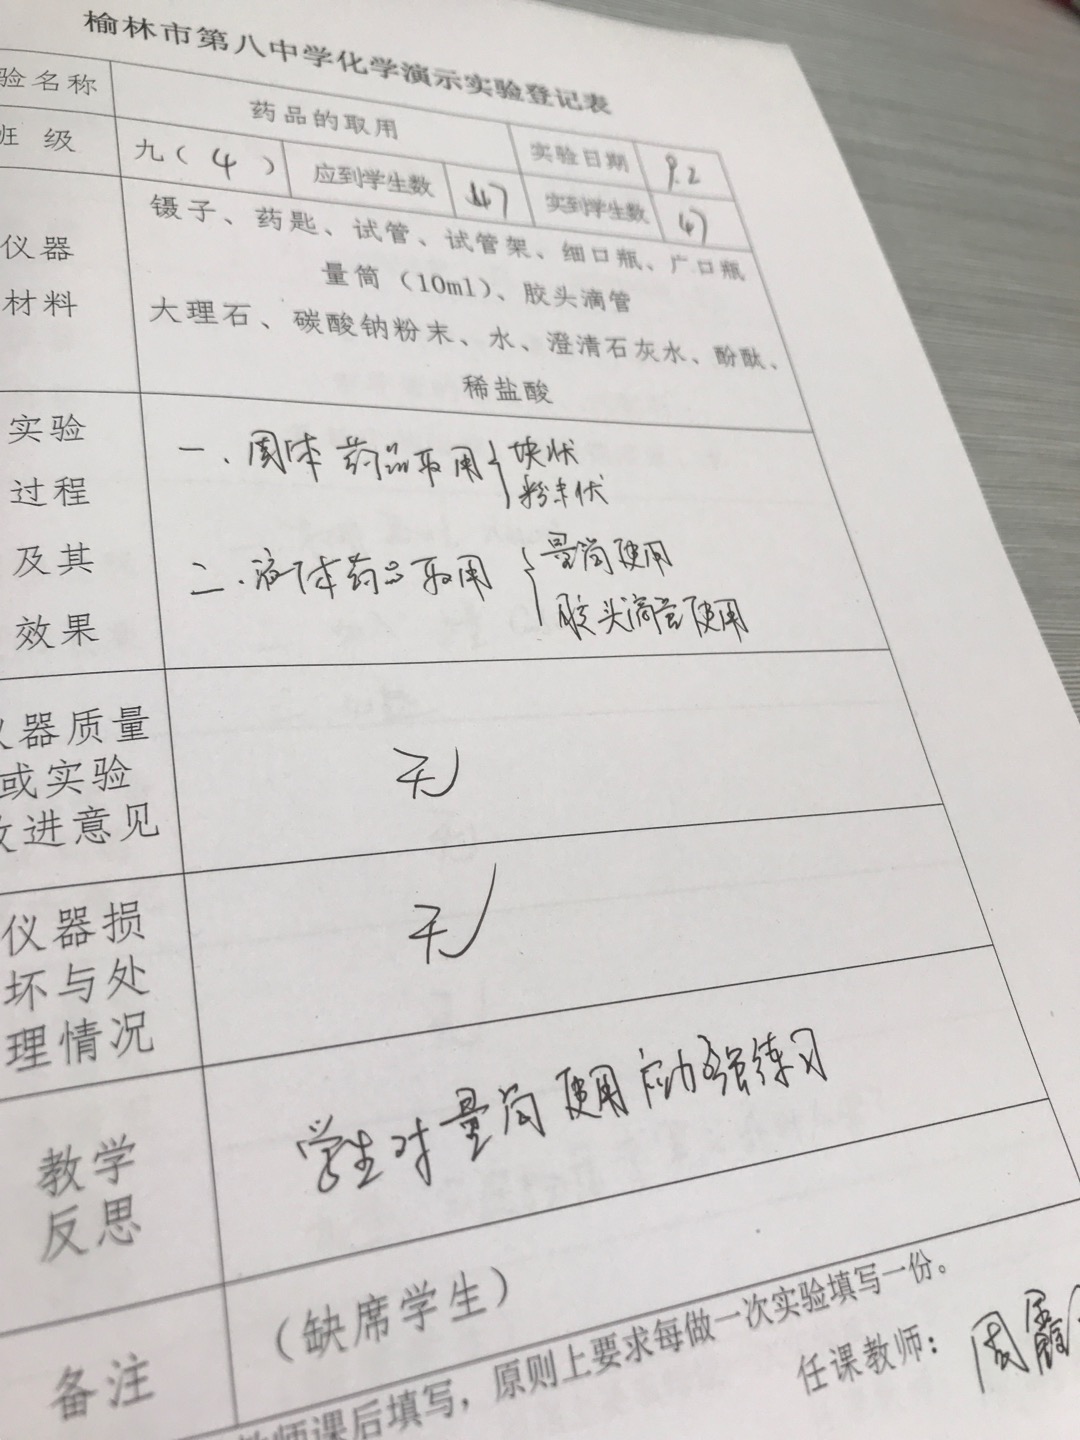 榆林市第八中学化学演示实验登记表
验名称 药品的取用 实验日期 9.2
班 级 九（4） 应到学生数 47 实到学生数 47
仪器
材料
镊子、药匙、试管、试管架、细口瓶、广口瓶
量筒（10ml）、胶头滴管
大理石、碳酸钠粉末、水、澄清石灰水、酚酞、
稀盐酸
实验
过程
及其
效果
一、固体药品取用 块状
粉末状
二、液体药品取用 量筒使用
胶头滴管使用
仪器质量
或实验
改进意见
无
仪器损
坏与处
理情况
无
教学
反思
学生对量筒使用应加强练习
备注
（缺席学生）
教师课后填写，原则上要求每做一次实验填写一份。
任课教师：周霞